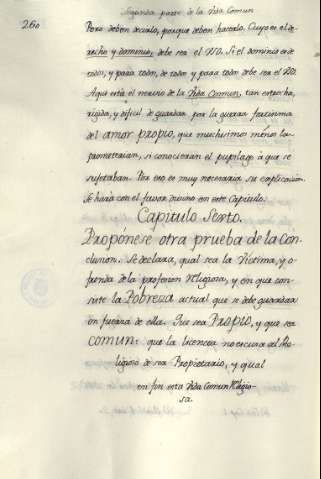 Segunda parte de la Vida Comun
260
Pero deben decirlo, porque deben hacerlo. Cuyo es el de-
recho y dominio, debe ser el No. Si el dominio es de
todos, y para todos, de todos y para todos debe ser el No.
Aqui está el nervio de la Vida Comun, tan estrecha,
rigida, y dificil de guardar por la guerra
del amor propio, que muchisimos menos la
prometerian, si conocieran el pupilage á que se
sujetaban. Por eso es muy necesaria su explicacion.
Se hará con el favor divino en este Capitulo.
Capitulo Sexto.
Propónese otra prueba de la Con-
clusion. Se declara, qual sea la Victima, y o-
frenda de la profesion Religiosa, y en que con-
siste la Pobreza actual que se debe guardar
en fuerza de ella. Que sea Propio, y que sea
comun: que la licencia no escusa al Re-
ligioso de ser Propietario, y qual
en fin esta Vida Comun Religio-
sa.